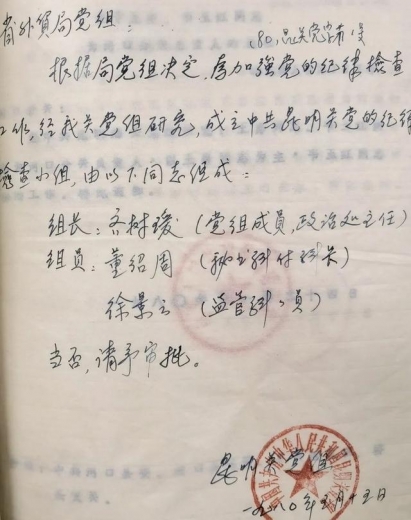 省外贸局党组：
(80)昆关党字第 号
根据局党组决定，为加强党的纪律检查
工作，经我关党组研究，成立中共昆明关党的纪律
检查小组，由以下同志组成：
组长：齐树瑗（党组成员，政治处主任）
组员：董绍周（秘书科付科长）
徐景云（监管科科员）
当否，请予审批。
昆明关党组
一九八〇年 月十五日